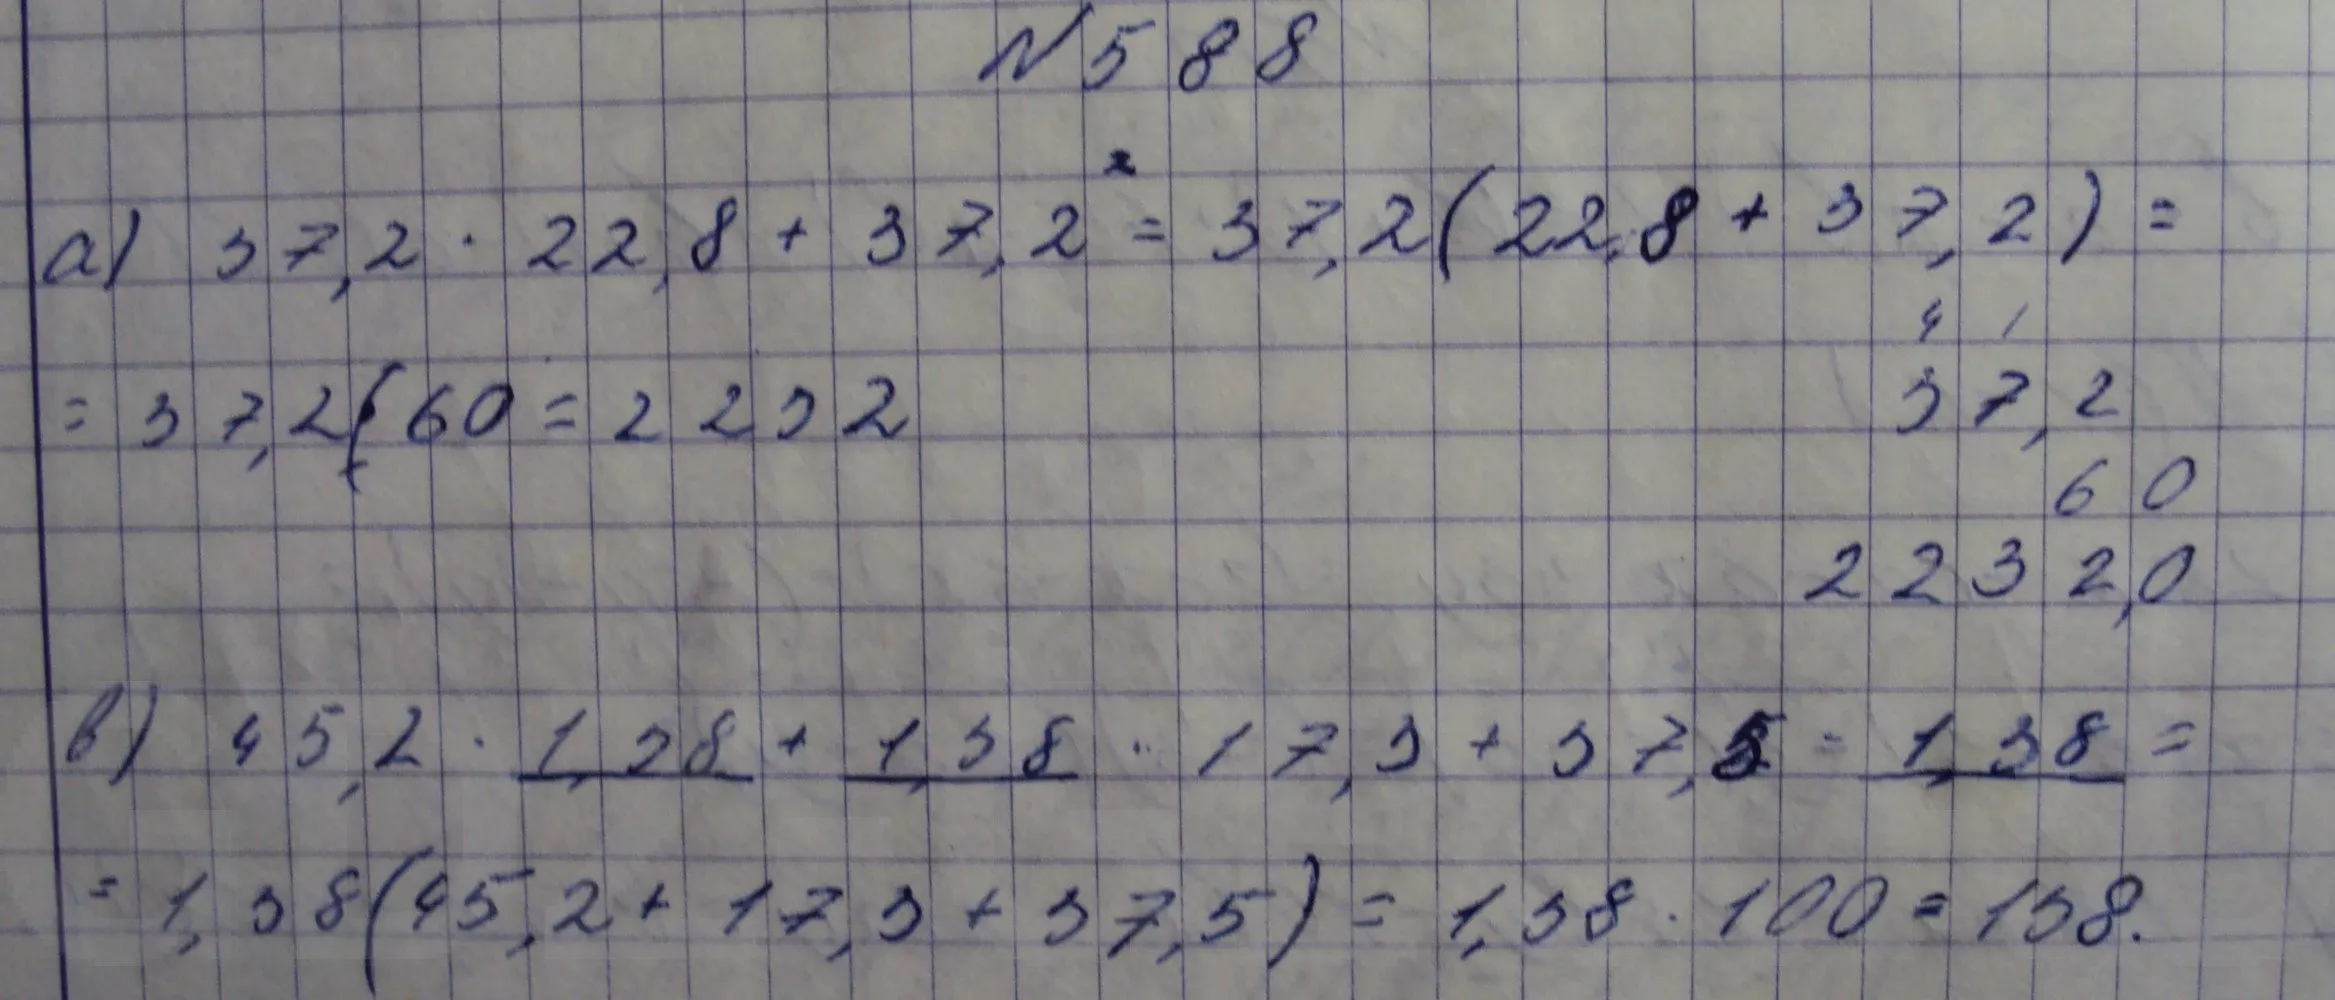 N 588
а) 37,2 · 22,8 + 37,2² = 37,2(22,8 + 37,2) =
4 1
= 37,2(60 = 2232
37,2
60
2232,0
в) 45,2 · 1,38 + 1,38 · 17,3 + 37,5 - 1,38 =
= 1,38(45,2 + 17,3 + 37,5) = 1,38 · 100 = 138.